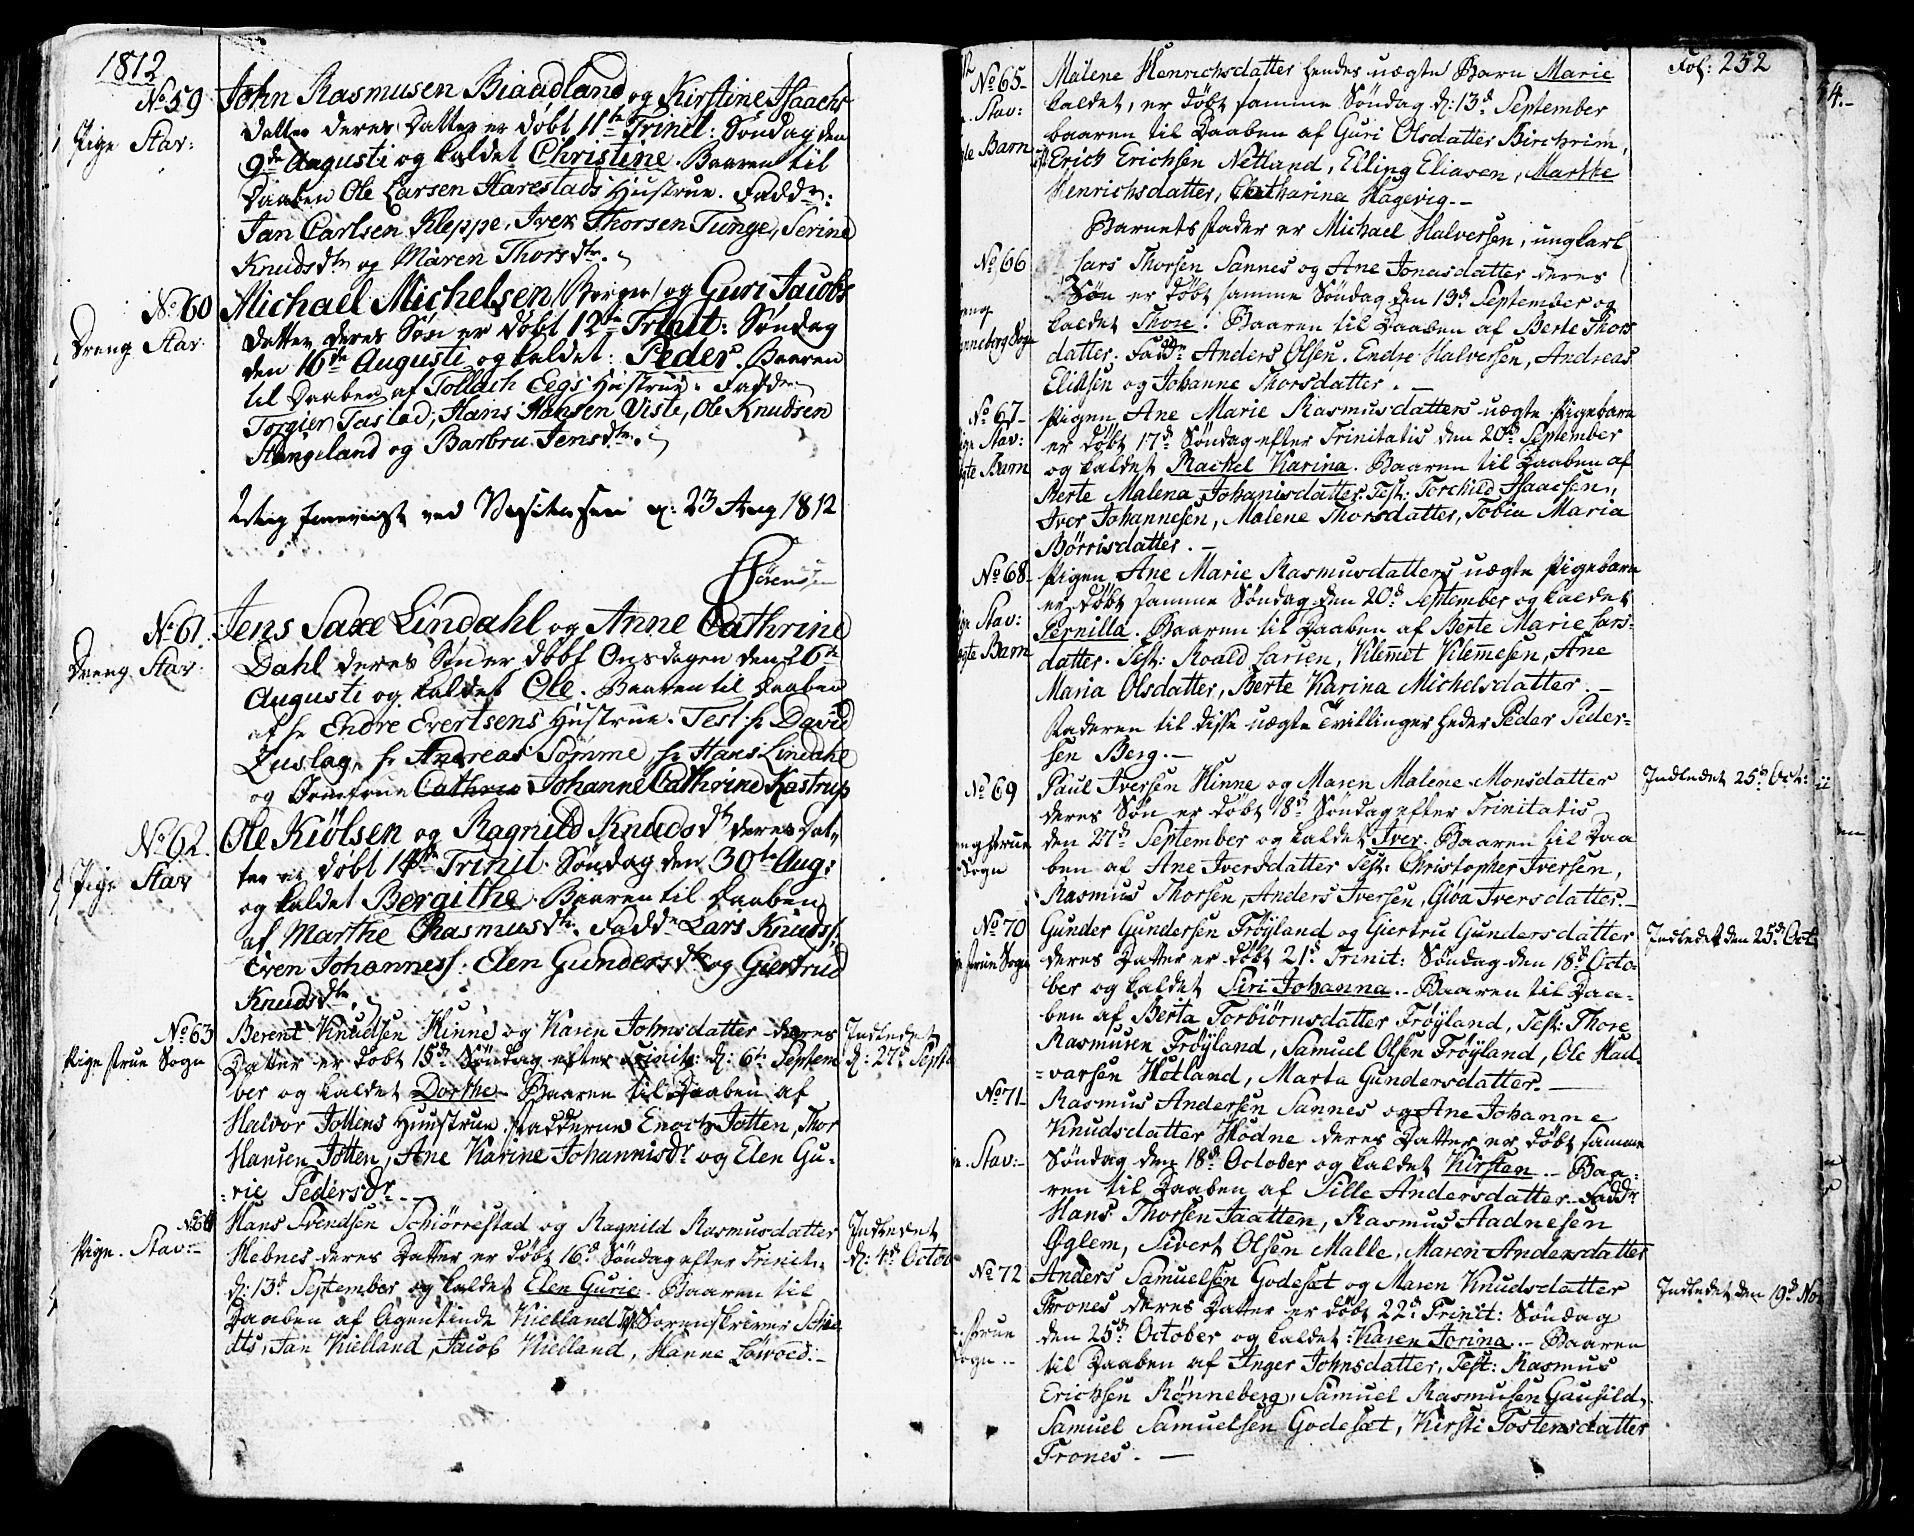 1812
No 59
Pige Stav:
John Rasmusen Biaadland og Kirstine Isaachs
datter deres Datter er døbt 11te Trinit: Søndag den
9de Augusti og kaldet Christine. Baaren til
Daaben Ole Larsen Harestads Hustrue. Faddr:
Jan Carlsen Kleppe, Iver Thorsen Tunge, Serine
Knudsdtr og Maren Thorsdtr.
No 60
Dreng Stav:
Michael Michelsen /Borger/ og Guri Jacobs
datter deres Søn er døbt 12te Trinit: Søndag
den 16de Augusti og kaldet: Peder. Baaren
til Daaben af Tollach Eegs Hustrue. Faddr
Torgier Tastad, Hans Hansen Viste, Ole Knudsen
Stangeland og Barbru Jensdtr.
ved Visitasen d: 23 Aug 1812
Sørensen
No 61.
Dreng Stav:
Jens Saxe Lindahl og Anne Cathrine
Dahl deres Søn er døbt Onsdagen den 26te
Augusti og kaldet Ole. Baaren til Daaben
af hr Endre Evertsens Hustrue. Test. hr David
Duslag, hr Andreas Sømme, hr Hans Lindahl
og Jomfrue Cathrin Johanne Cathrine Kastrup
No 62.
Pige Stav
Ole Kiølsen og Ragnild Knudsdtr deres Dat-
ter er døbt 14de Trinit. Søndag den 30te Aug:
og kaldet Bergithe. Baaren til Daaben
af Marthe Rasmusdtr. Faddr Lars Knuds:
Even Johannes: Elen Gundersdtr og Giertrud
Knudsdtr.
No 63
Pige frue Sogn
Berent Knudsen Hinne og Karen Johnsdatter deres
Datter er døbt 15de Søndag efter Trinit: d: 6te Septem
ber og kaldet Dorthe. Baaren til Daaben af
Halvor Jottens Hustrue. Fadderne Enoch Jotten, Thor
Hansen Jotten, Ane Karine Johannisdr og Elen Gu-
rie Pedersdr.
Indledet
d: 27d Septr
No 64
Pige. Stav:
Hans Svendsen Schiørrestad og Ragnild Rasmusdatter
Hebnes deres Datter er døbt 16d Søndag efter Trinit:
d: 13d September og kaldet Elen Gurie. Baaren til
Daaben af Agentinde Kielland, Test: Sorenskriver Schi
dts, Jan Kielland, Jacob Kielland, Hanne Løwoed.
Indledet
d: 4d Octob
Fol: 252
54.
No 65
Stav:
Barn
Malene Henrichsdatter hendes uægte Barn Marie
kaldet, er døbt samme Søndag d: 13d September
baaren til Daaben af Guri Olsdatter Birchrim,
Test: Erich Erichsen Netland, Elling Eliasen, Marthe
Henrichsdatter, Catharina Hagevig.
Barnets fader er Michael Halversen, ungkarl
No 66
Lars Thorsen Sannes og Ane Jonasdatter deres
Søn er døbt samme Søndag den 13d September og
kaldet Thore. Baaren til Daaben af Berte Thors
datter. Faddr Anders Olsen. Endre Halversen, Andreas
Eliasen og Johanne Thorsdatter.
No 67
Stav:
Barn
Pigen Ane Marie Rasmusdatters uægte Pigebarn
er døbt 17d Søndag efter Trinitatis den 20d September
og kaldet Rachel Karina. Baaren til Daaben af
Berte Malena Johanisdatter. Test: Torchild Isaacsen,
Iver Johannesen, Malene Thorsdatter, Tobia Maria
Børrisdatter.
No 68
Stav:
Barn
Pigen Ane Marie Rasmusdatters uægte Pigebarn
er døbt samme Søndag den 20d September og kaldet
Pernilla. Baaren til Daaben af Berte Marie Lars-
datter. Test: Roald Larsen, Vilemet Vilemesen, Ane
Maria Olsdatter, Berte Karina Michelsdatter
Faderen til disse uægte Tvillinger heder Peder Peder-
sen Berg.
No 69
frue
Sogn
Paul Iversen Hinne og Maren Malene Monsdatter
deres Søn er døbt 18d Søndag efter Trinitatis
den 27d September og kaldet Iver. Baaren til Daa
ben af Ane Iversdatter Test: Christopher Iversen,
Rasmus Thorsen, Anders Iversen, Giøa Iversdatter.
Indledet 25d Oct:
No 70
frue Sogn
Gunder Gundersen Frøyland og Giertru Gundersdatter
deres Datter er døbt 21d Trinit: Søndag den 18d Octo-
ber og kaldet Siri Johanna. Baaren til Daa-
ben af Berta Torbiørnsdatter Frøyland, Test: Thore
Rasmusen Frøyland, Samuel Olsen Frøyland, Ole Had-
varsen Hetland, Marta Gundersdatter.
Indledet den 25d Oct
No 71
Stav:
Rasmus Andersen Sannes og Ane Johanne
Knudsdatter Hødne deres Datter er døbt samme
Søndag den 18d October og kaldet Kirsten. Baa-
ren til Daaben af Sille Andersdatter. Faddr
Hans Thorsen Jaatten, Rasmus Aadnesen
Øglem, Sivert Olsen Malle, Maren Andersdatter
No 72
frue
Sogn
Anders Samuelsen Godeset og Maren Knudsdatter
Trones deres Datter er døbt 22d Trinit: Søndag
den 25d October og kaldet: Karen Jorina. Baaren
til Daaben af Inger Johnsdatter, Test: Rasmus
Erichsen Rønneberg, Samuel Rasmusen Gausild,
Samuel Samuelsen Godeset, Kirsti Tostensdatter
Trones.
Indledet den 19d No